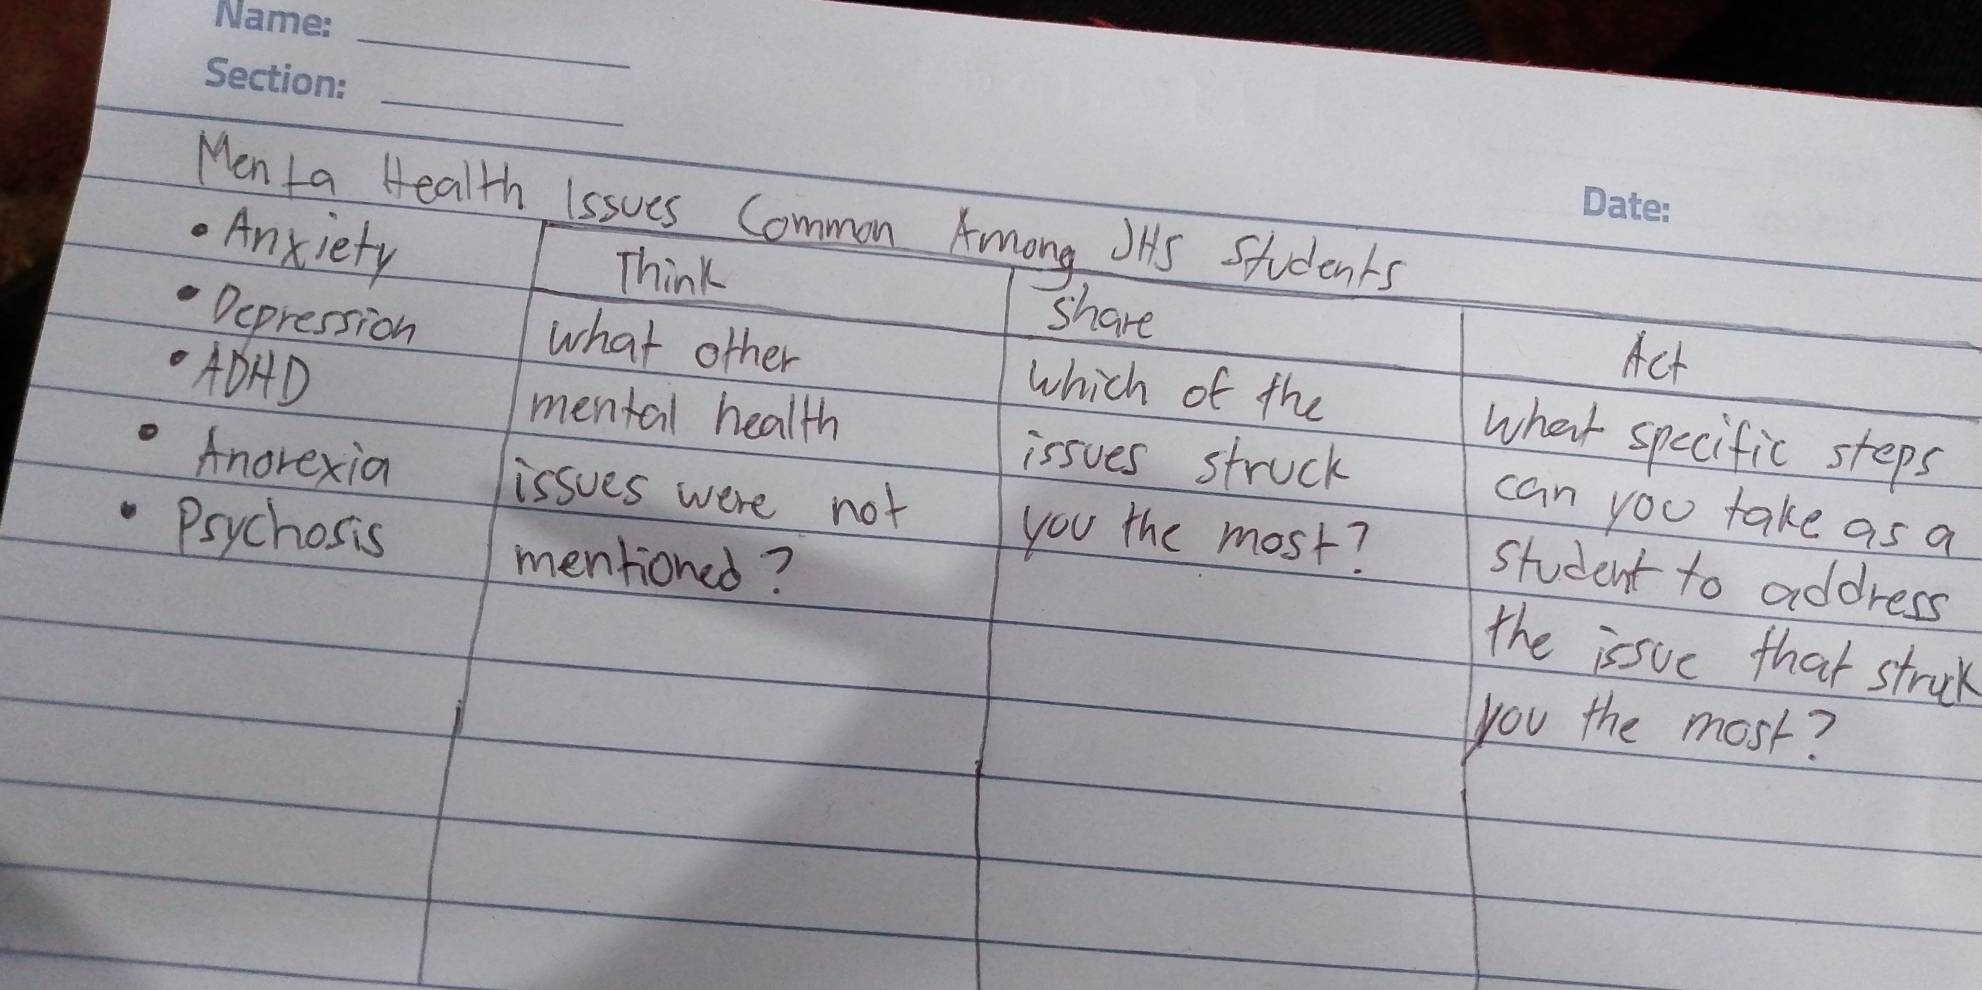 Name:
Section:
Date:
Menta Health Issues Common Among JHS Students
• Anxiety
• Depression
• ADHD
• Anorexia
• Psychosis
Think
what other
mental health
issues were not
mentioned?
Share
which of the
issues struck
you the most?
Act
What specific steps
can you take as a
student to address
the issue that struck
you the most?